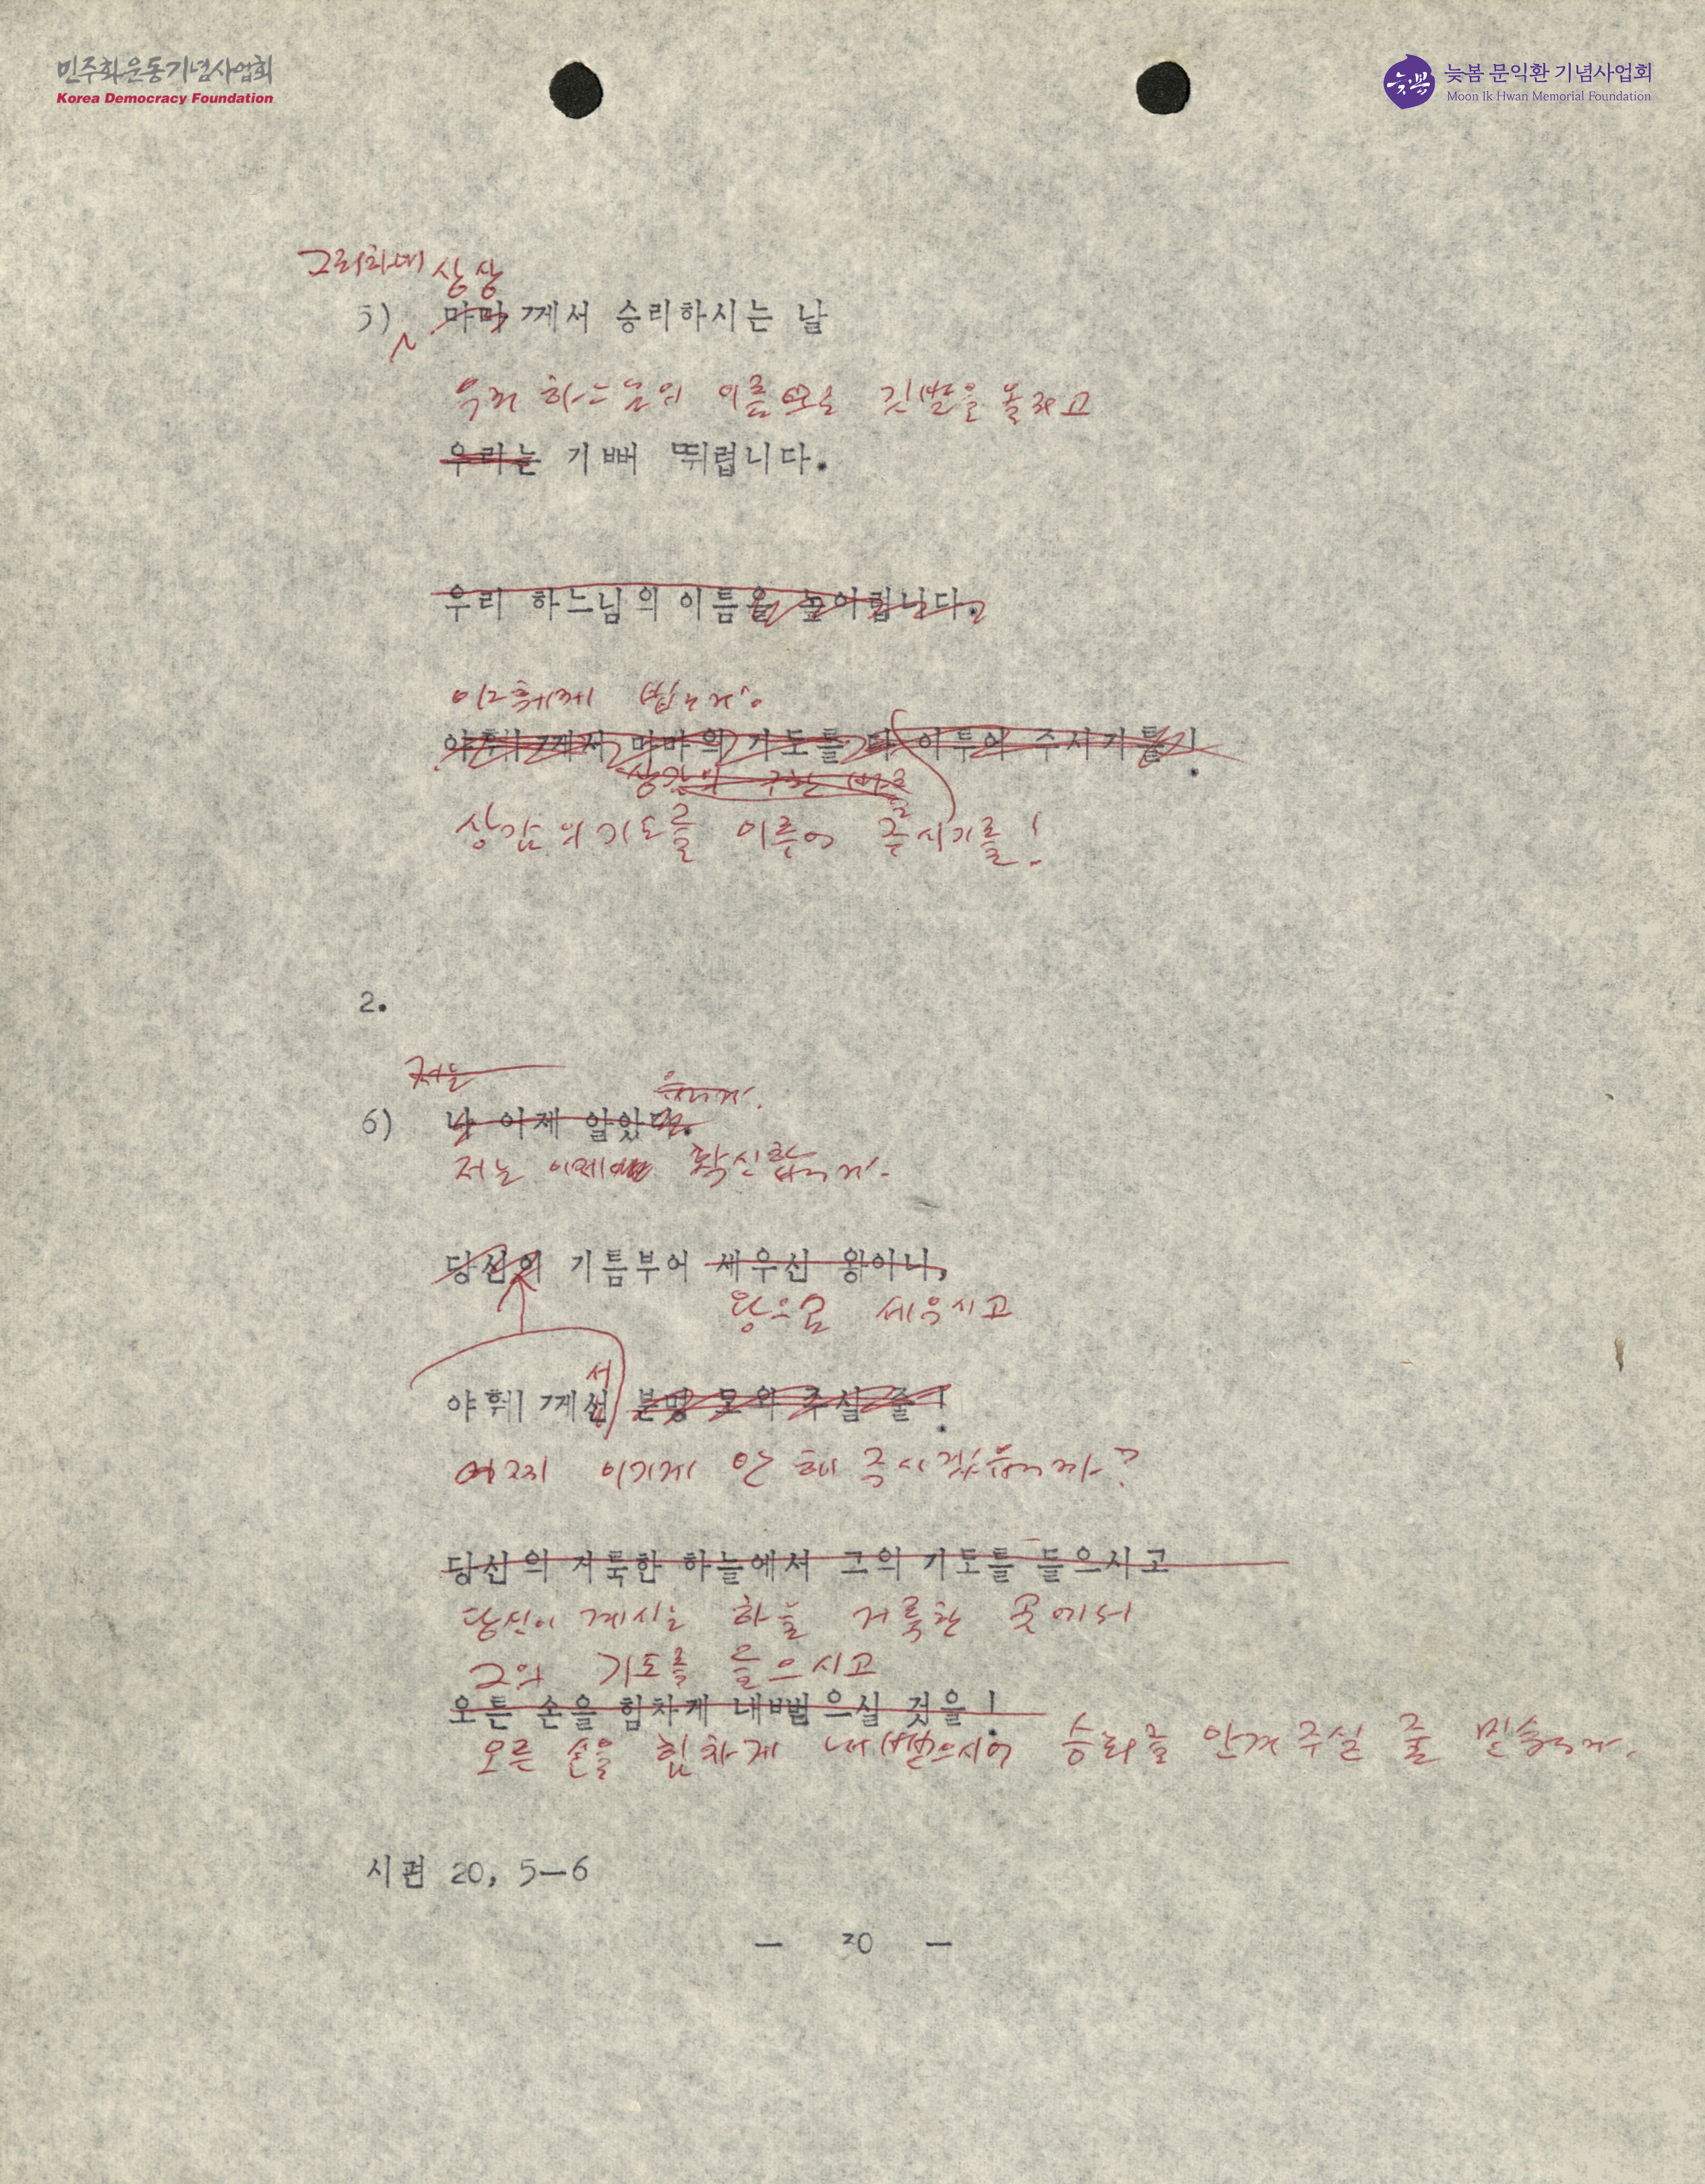 민주화운동기념사업회
Korea Democracy Foundation
늦봄 문익환 기념사업회
Moon Ik Hwan Memorial Foundation
그리하여 상감
5) 마마께서 승리하시는 날
우리 하느님의 이름으로 깃발을 올리고
우리는 기뻐 뛰렵니다.
우리 하느님의 이름을 높이렵니다.
야훼께 빕니다.
야훼께서 마마의 기도를 다 이루어 주시기를!
상감의 구하는 바를
상감의 기도를 이루어 주시기를!
2.
저는
습니다.
6) 나 이제 알았다.
저는 이제 확신합니다.
당신의 기름부어 세우신 왕이니,
왕으로 세우시고
서
야훼께선 분명 도와 주실 줄!
어찌 이기게 안 해 주시겠습니까?
당신의 거룩한 하늘에서 그의 기도를 들으시고
당신이 계시는 하늘 거룩한 곳에서
그의 기도를 들으시고
오른 손을 힘차게 내뻗으실 것을!
오른 손을 힘차게 내뻗으시어 승리를 안겨 주실 줄 믿습니다.
시편 20, 5—6
— 20 —